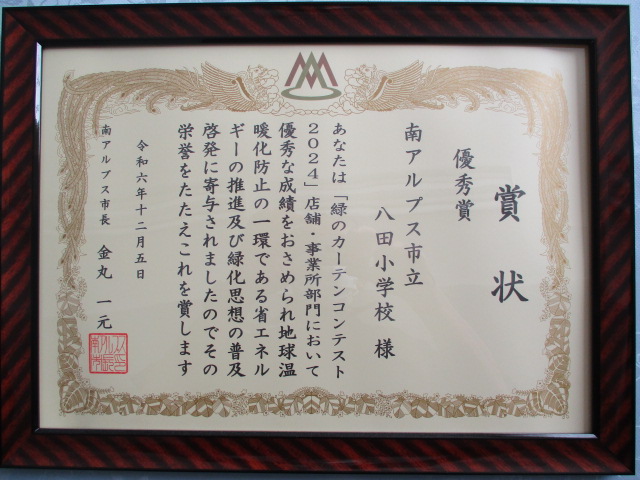 賞状
優秀賞
南アルプス市立
八田小学校 様
あなたは「緑のカーテンコンテスト
2024」店舗・事業所部門において
優秀な成績をおさめられ地球温
暖化防止の一環である省エネル
ギーの推進及び緑化思想の普及
啓発に寄与されましたのでその
栄誉をたたえこれを賞します
令和六年十二月五日
南アルプス市長 金丸 一元